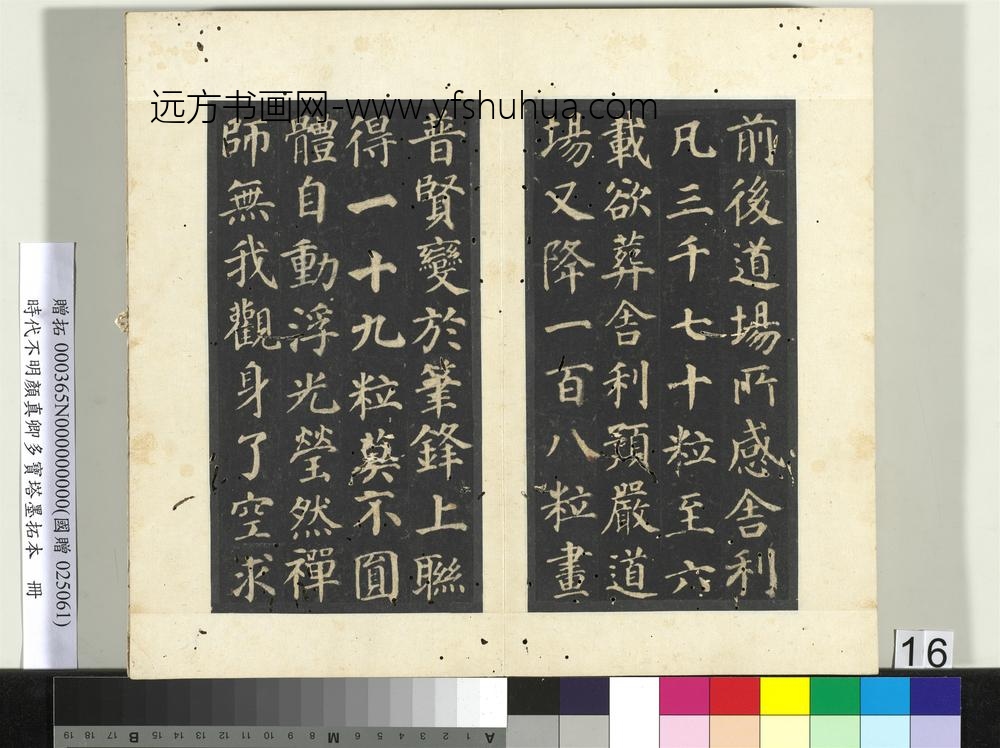 远方书画网-www.yfshuhua.com
前後道場所感舍利
凡三千七十粒至六
載欲葬舍利預嚴道
場又降一百八粒畫
普賢變於筆鋒上聯
得一十九粒莫不圓
體自動浮光瑩然禪
師無我觀身了空求
贈拓 000365N000000000(國贈 025061)
時代不明顏真卿多寶塔墨拓本 冊
16
A 1 2 3 4 5 6 M 8 9 10 11 12 13 14 15 B 17 18 19